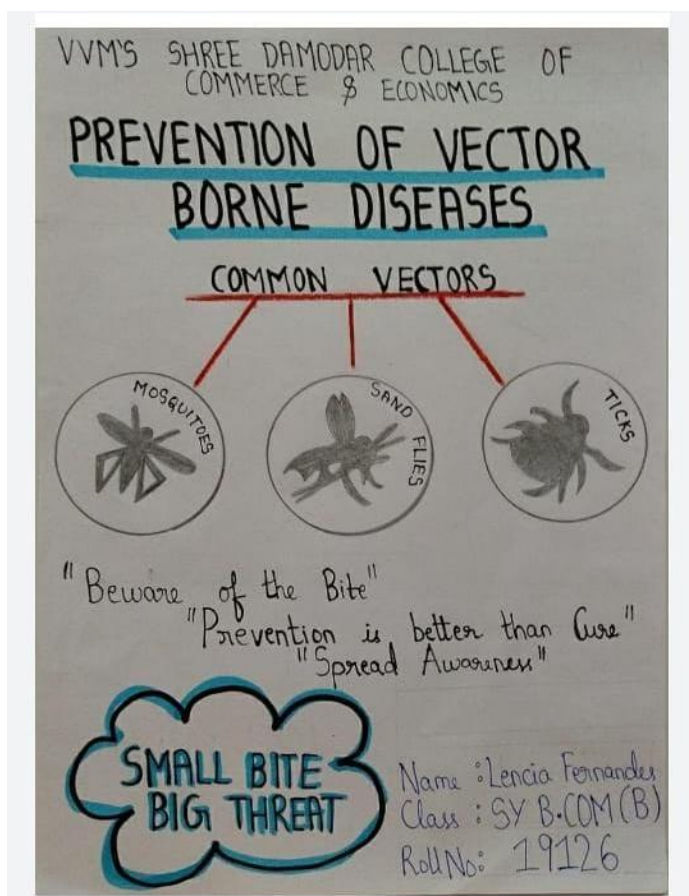 VVM'S SHREE DAMODAR COLLEGE OF
COMMERCE & ECONOMICS
PREVENTION OF VECTOR
BORNE DISEASES
COMMON VECTORS
MOSQUITOES
SAND FLIES
TICKS
"Beware of the Bite"
"Prevention is better than Cure"
"Spread Awareness"
SMALL BITE
BIG THREAT
Name : Lencia Fernandes
Class : SY B.COM (B)
Roll No: 19126